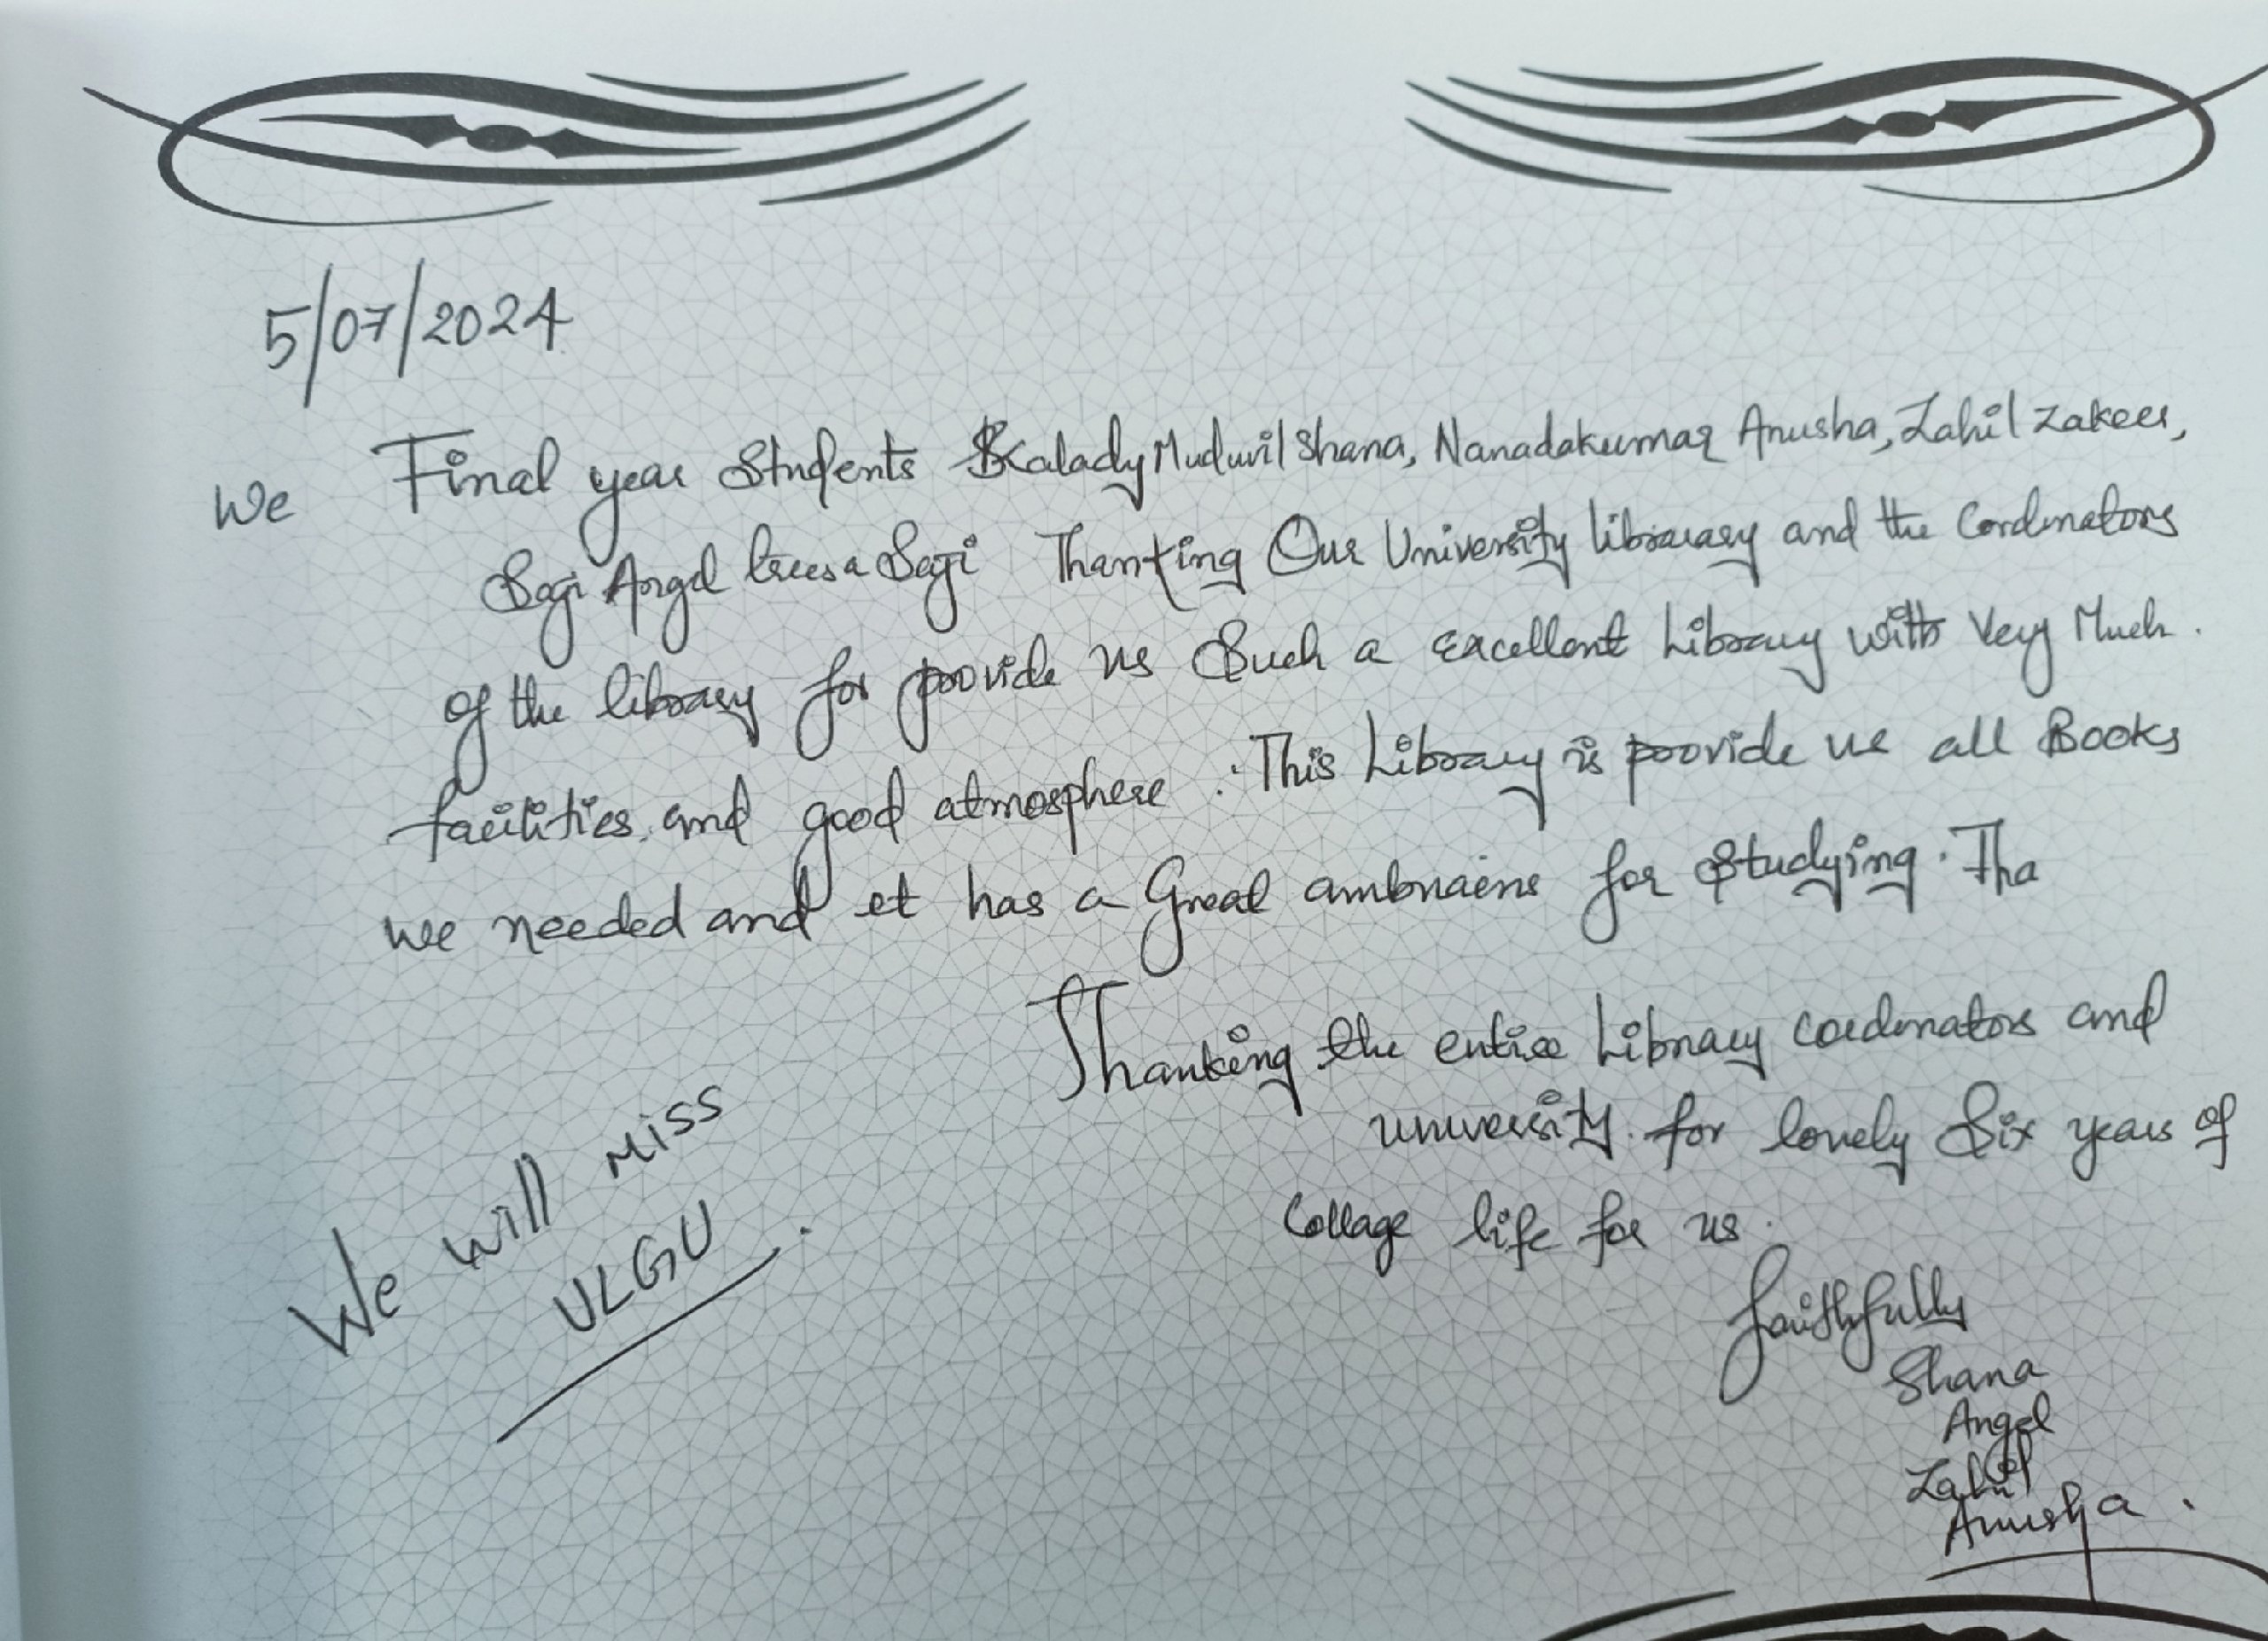 5/07/2024
We Final year Students Kalady Muduvil Shana, Nanadakumar Anusha, Zahil Zakeer,
Sagi Angel treesa Sagi Thanking Our University librarary and the Cordinators
of the library for provide us Such a excellent Library with Very Much.
facilities, and good atmosphere. This Library is provide us all Books
we needed and et has a Great for Studying. Tha
Thanking the entire Library cordinators and
university for lovely Six years of
Collage life for us.
We will miss
ULGU.
faithfully
Shana
Angel
Zahil
Anusha.